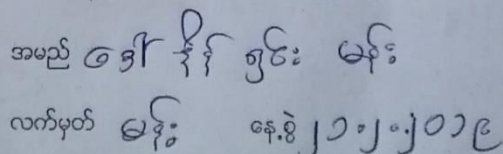 အမည် ဒေါ် နန် ရှင်း မန်း
လက်မှတ် မန်း နေ့စွဲ ၂၁.၂.၂၀၁၉